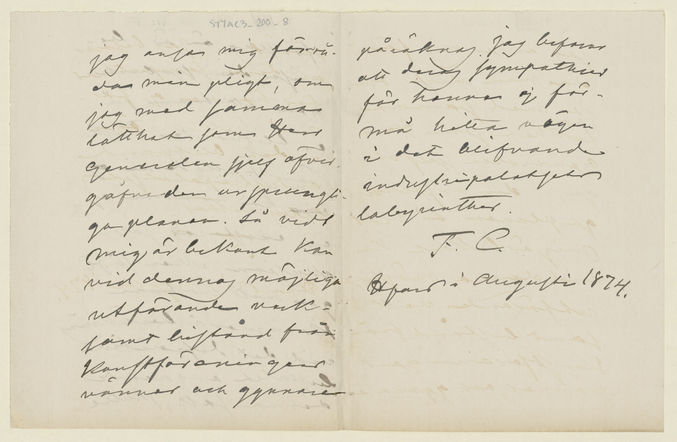 S77AC3_200_8
jag anser mig förråda
da min pligt, om
jag med samma
lätthet som Herr
Generalen sjelf öfver-
gåfve den ursprungli-
ga planen. Så vidt
mig är bekant kan
vid dennas möjliga
utförande verk-
samt bistånd från
Konstföreningens
vänner och gynnare
påräknas. jag befarar
att deras sympathier
för henne ej för-
må hitta vägen
i det blifvande
industripalatsets
labyrinther.
F. C.
i Augusti 1874.